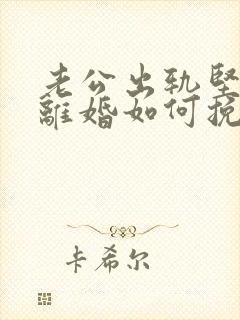 老公出轨坚
離婚如何挽
卡希尔